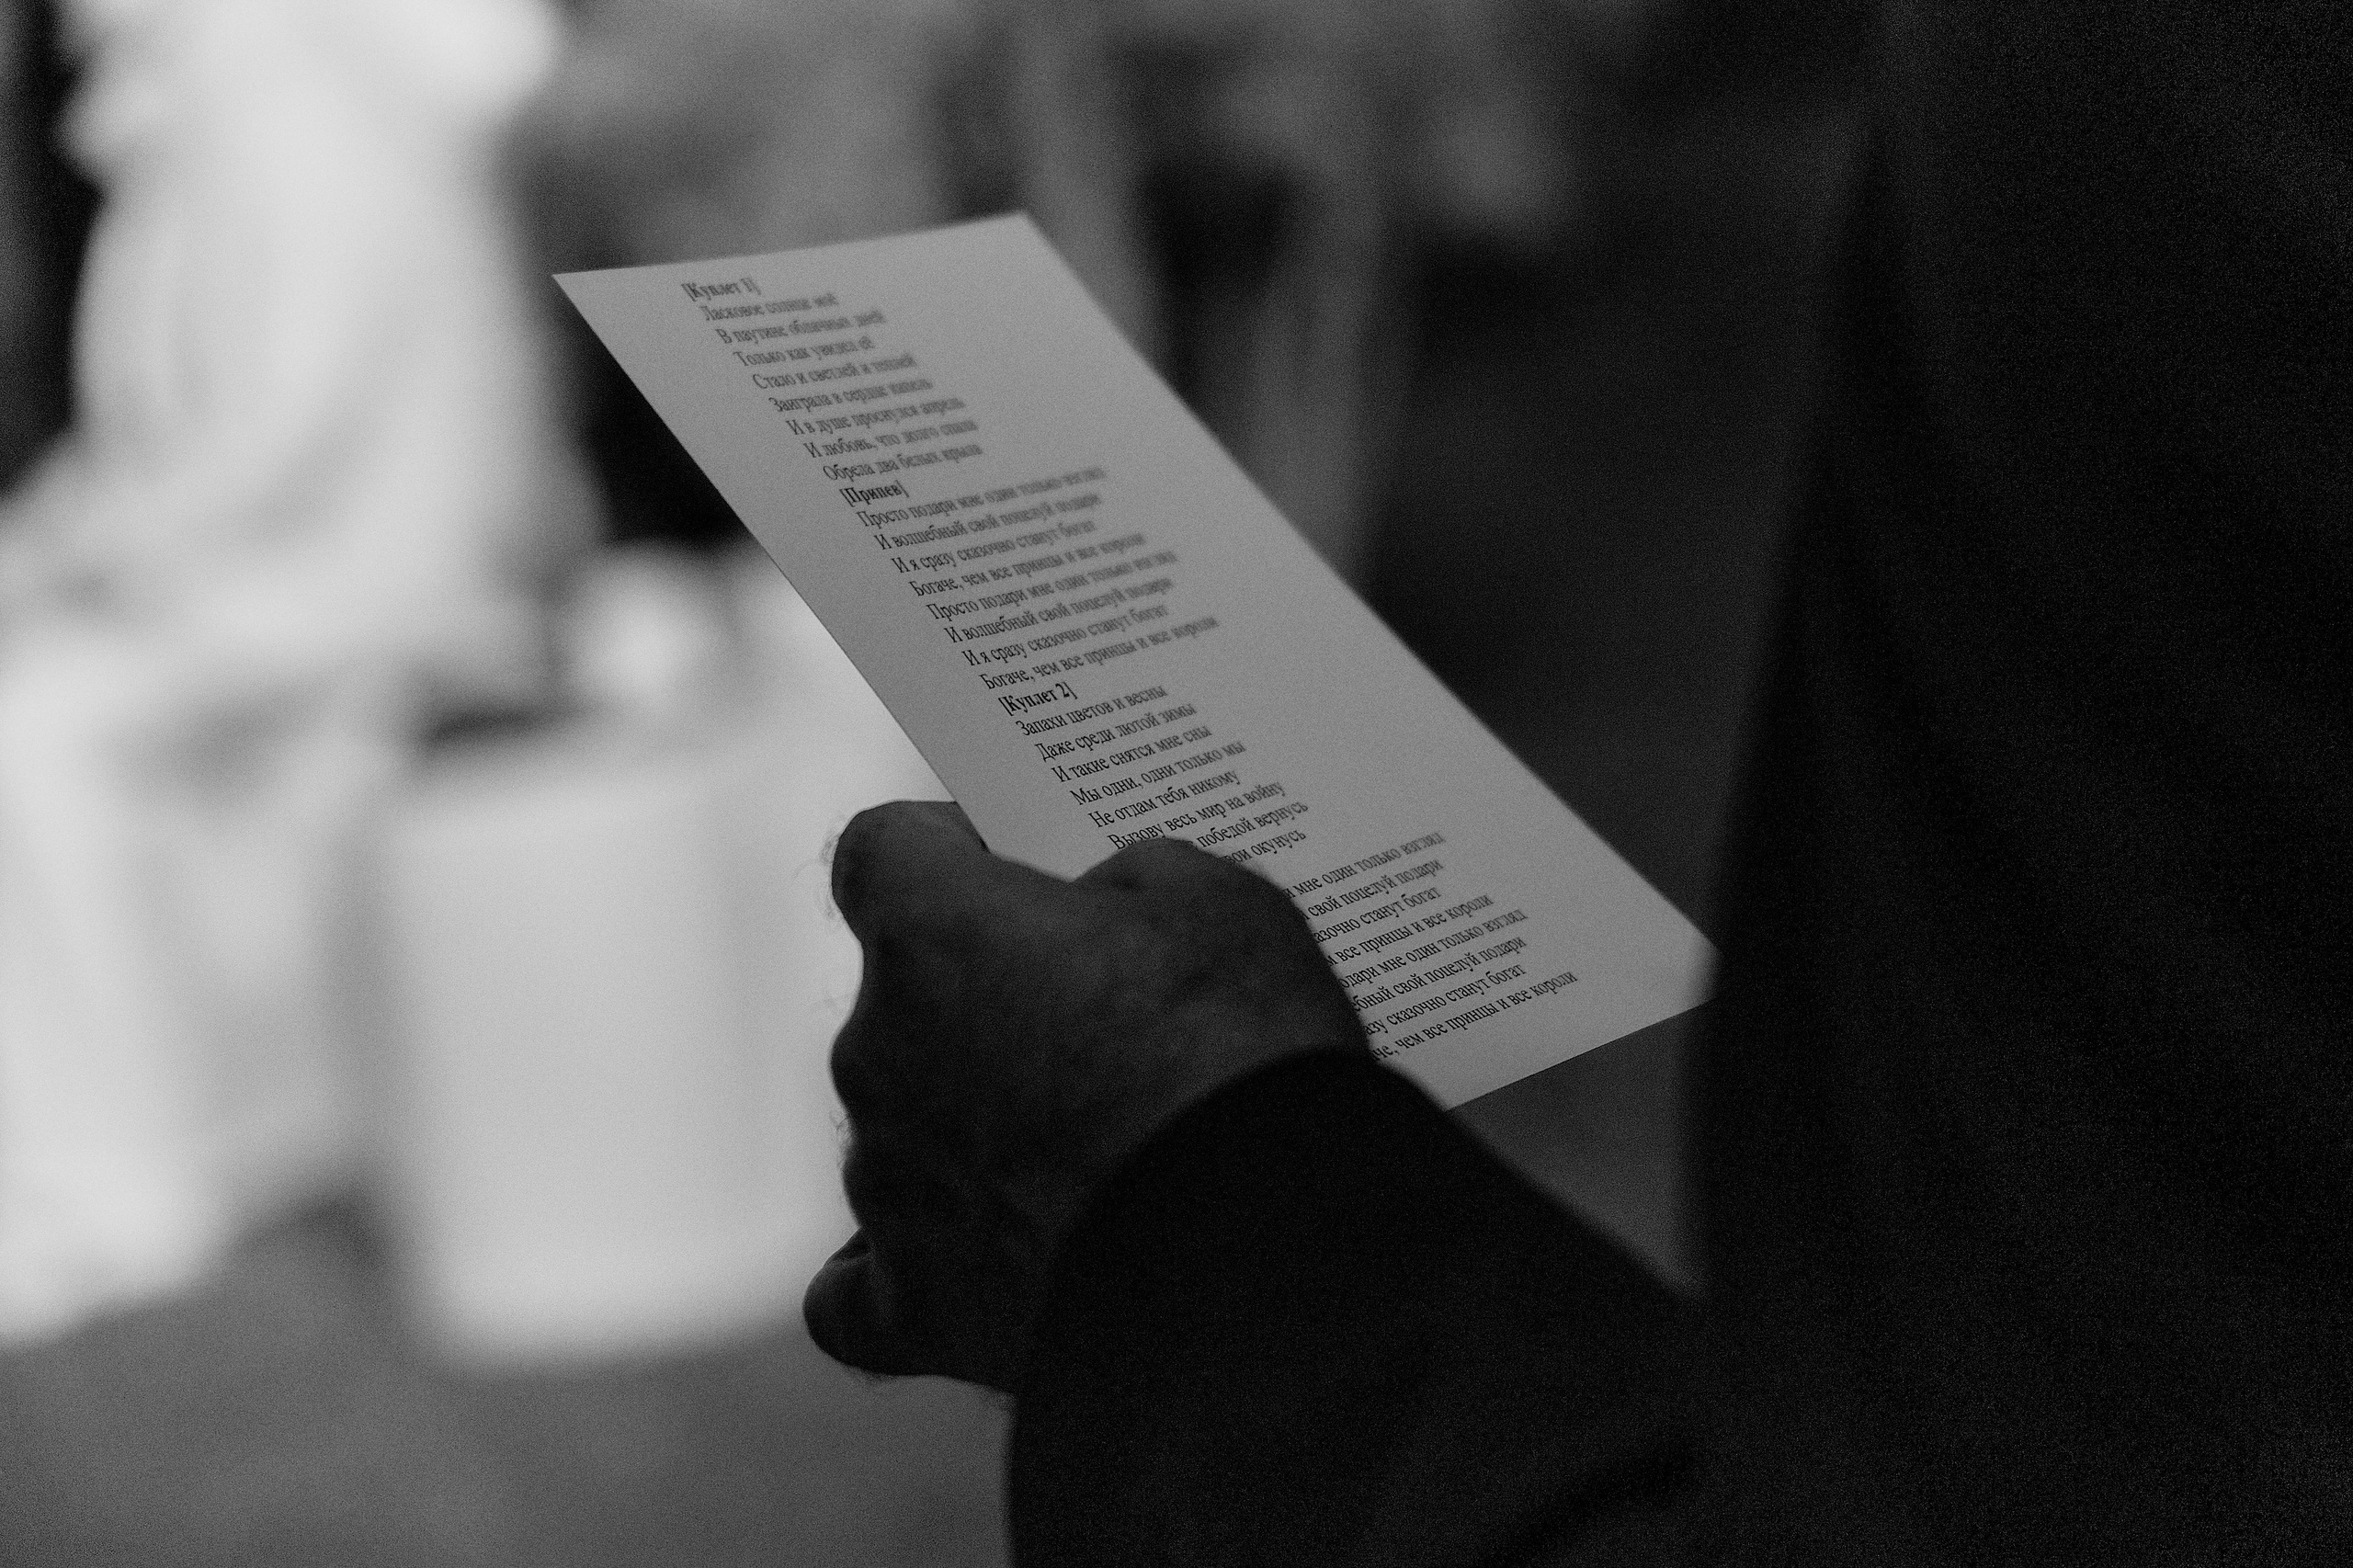 [Куплет 1]
Ласковое солнце моё
В паутине облачных дней
Только как увидел её
Стало и светлей и теплей
Заиграла в сердце капель
И в душе проснулся апрель
И любовь, что долго спала
Обрела два белых крыла
[Припев]
Просто подари мне один только взгляд
И волшебный свой поцелуй подари
И я сразу сказочно стану богат
Богаче, чем все принцы и все короли
Просто подари мне один только взгляд
И волшебный свой поцелуй подари
И я сразу сказочно стану богат
Богаче, чем все принцы и все короли
[Куплет 2]
Запахи цветов и весны
Даже среди лютой зимы
И такие снятся мне сны
Мы одни, одни только мы
Не отдам тебя никому
Вызову весь мир на войну
победой вернусь
окунусь
мне один только взгляд
свой поцелуй подари
стану богат
все принцы и все короли
мне один только взгляд
свой поцелуй подари
сказочно стану богат
чем все принцы и все короли